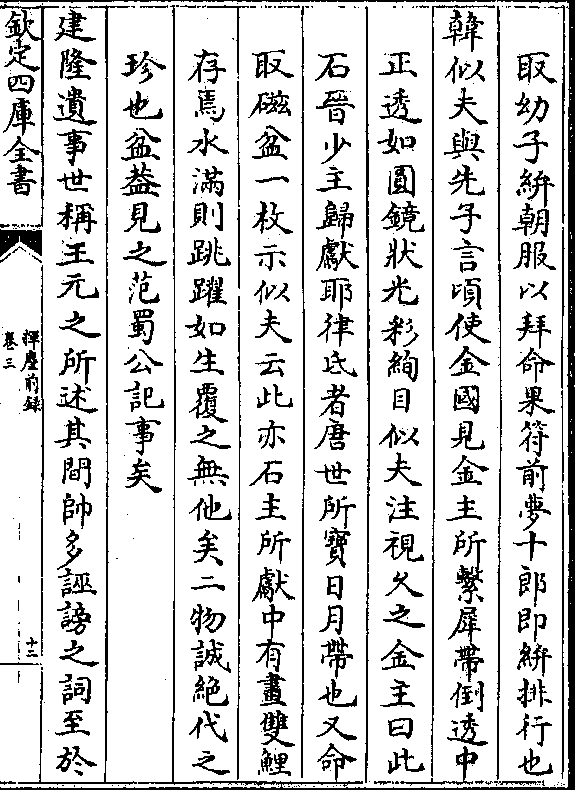 取幼子絣朝服以拜命果符前夢十郎即絣排行也
韓似夫與先子言頃使金國見金主所繫犀帶倒透中
正透如圓鏡狀光彩絢目似夫注視久之金主曰此
石晉少主歸獻耶律氏者唐世所寶日月帶也又命
取磁盆一枚示似夫云此亦石主所獻中有畫雙鯉
存焉水滿則跳躍如生覆之無他矣二物誠絶代之
珍也盆葢見之范蜀公記事矣
建隆遺事世稱王元之所述其間帥多誣謗之詞至於
欽定四庫全書
揮麈前錄
卷三
十二